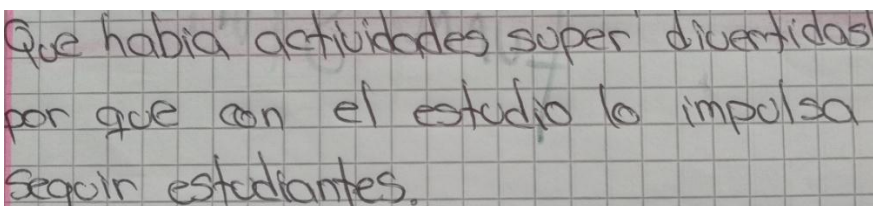 Que habia actividades super divertidas
por que con el estudio lo impulsa
seguir estudiantes.